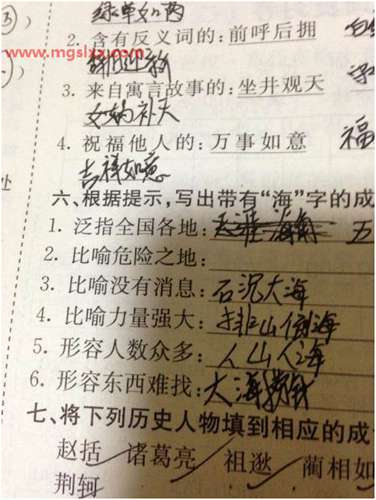 绿草如茵
2. 含有反义词的：前呼后拥
www.mgslxx.com
3. 来自寓言故事的：坐井观天
女娲补天
4. 祝福他人的：万事如意 福
吉祥如意
处
六、根据提示，写出带有“海”字的成
1. 泛指全国各地： 五
2. 比喻危险之地：
3. 比喻没有消息：石沉大海
4. 比喻力量强大：排山倒海
5. 形容人数众多：人山人海
6. 形容东西难找：大海捞针
七、将下列历史人物填到相应的成
赵括 诸葛亮 祖逖 蔺相如
荆轲